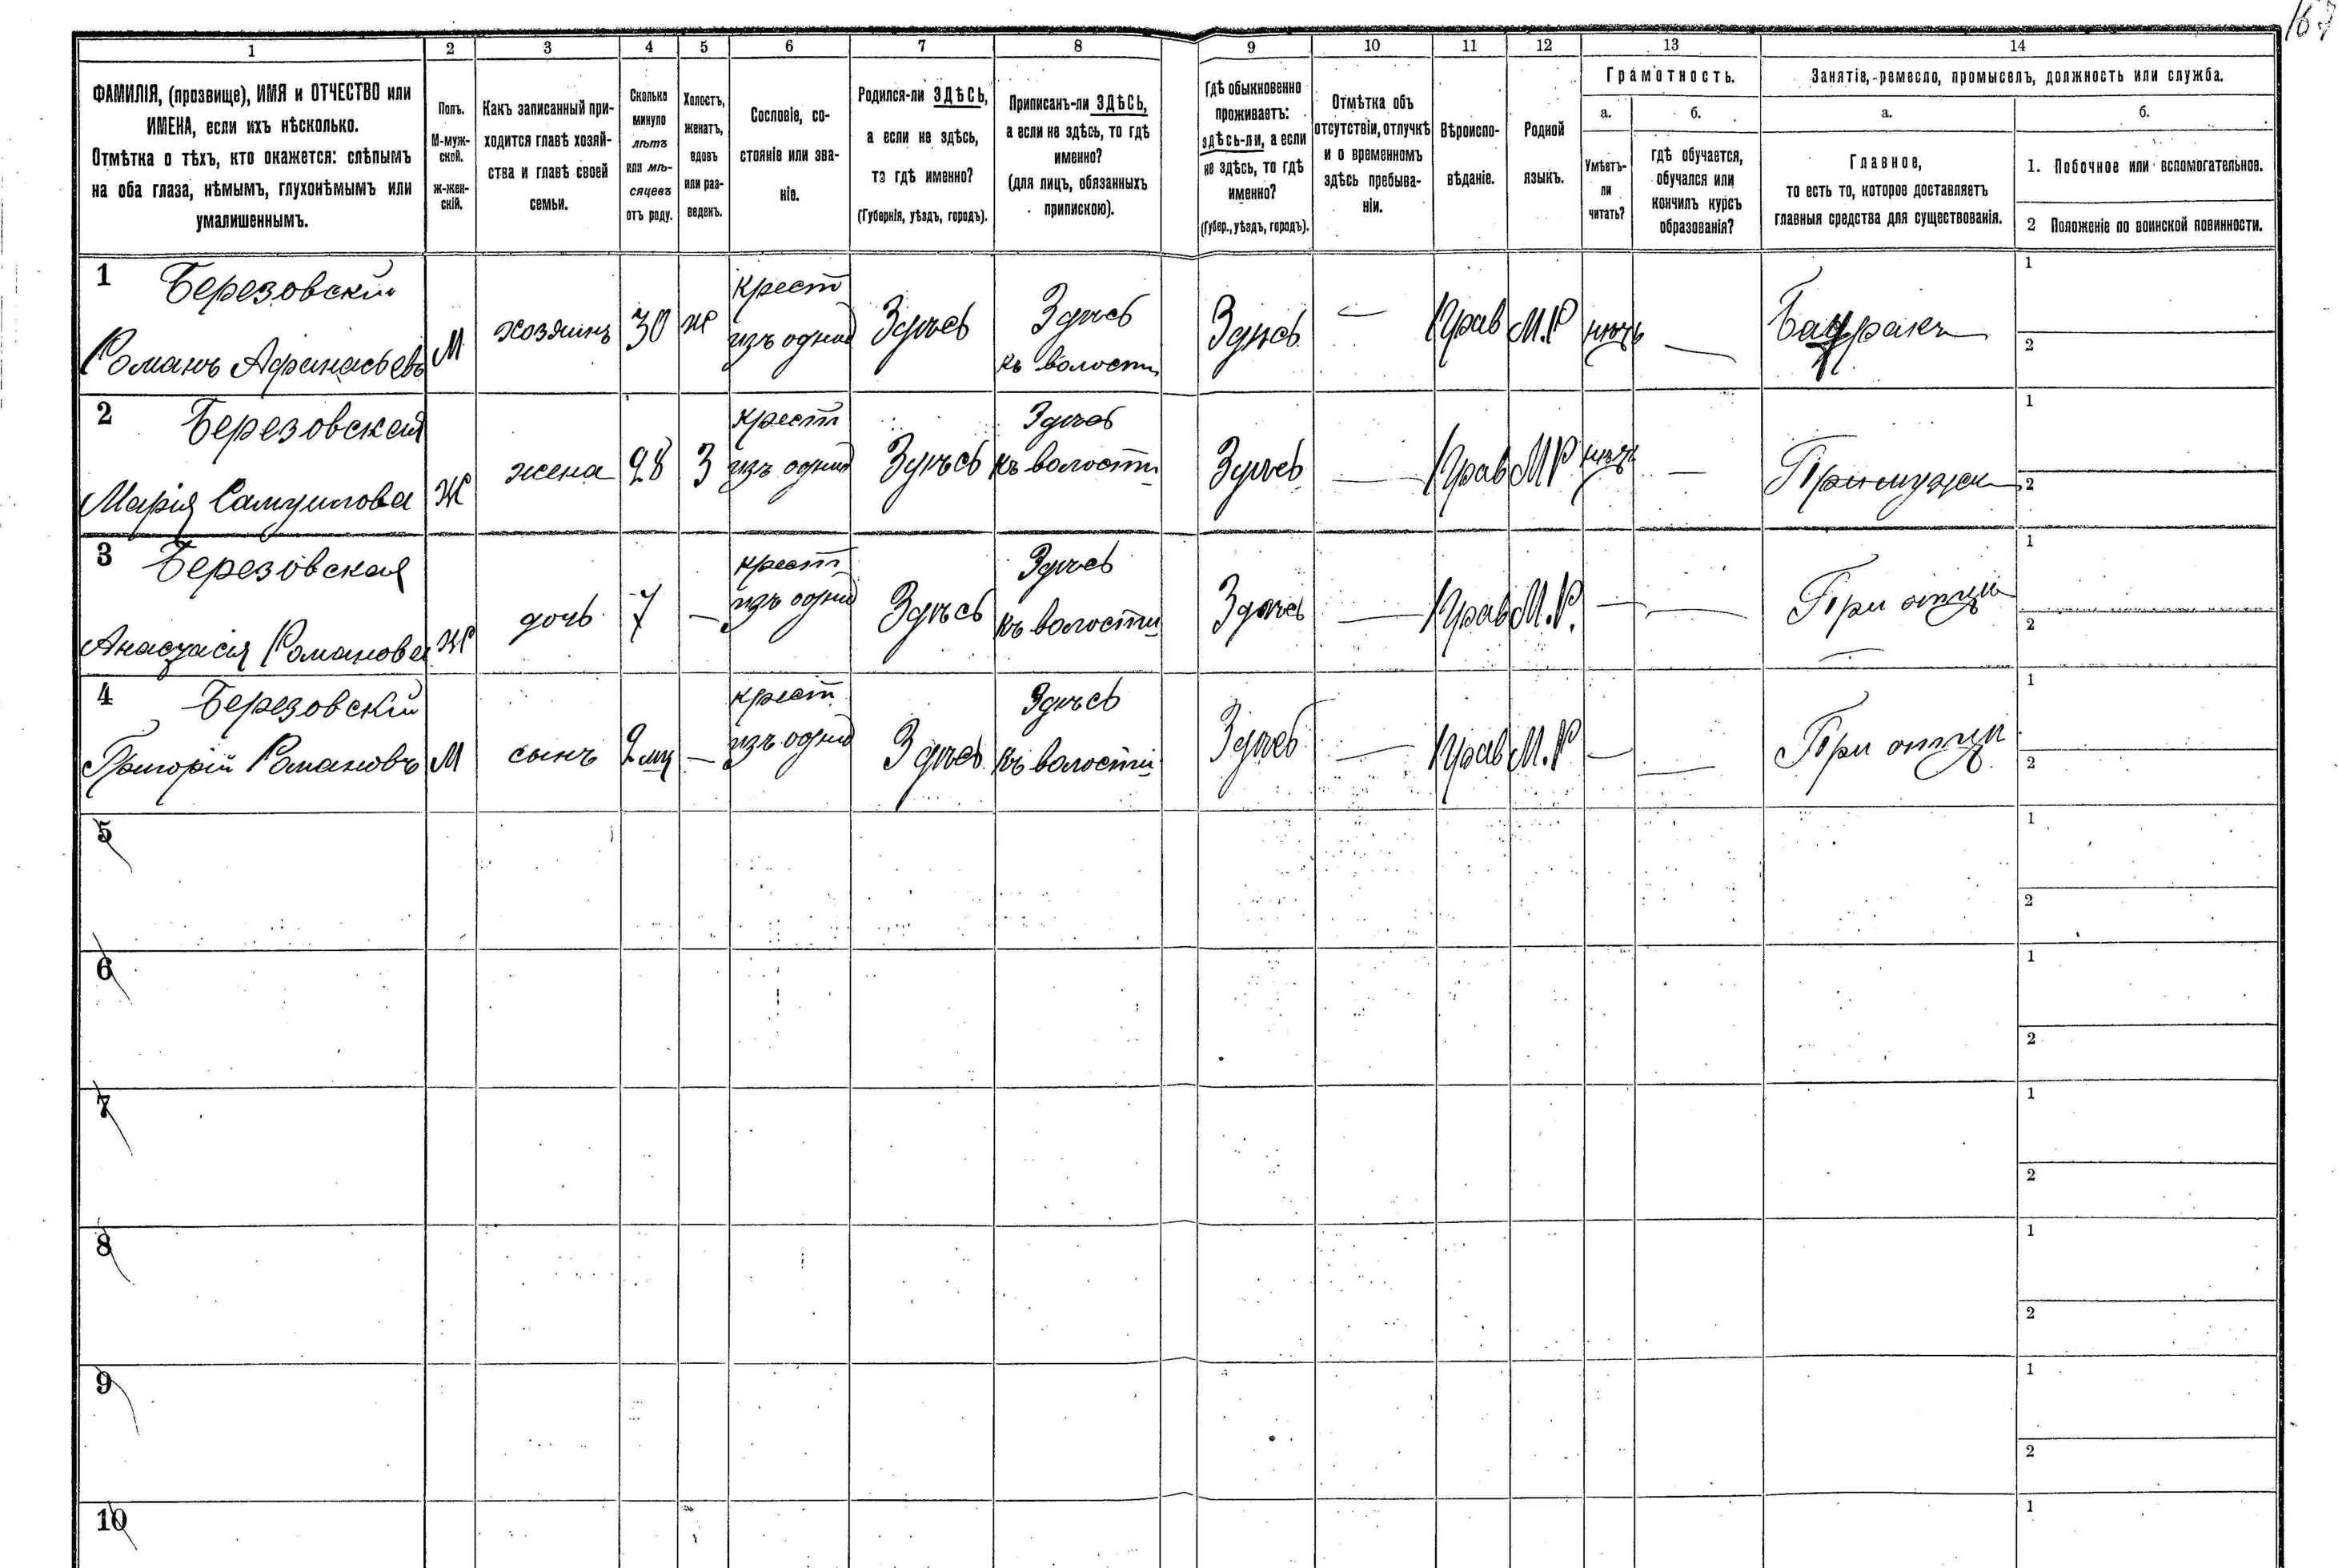 167
1
2
3
4
5
6
7
8
9
10
11
12
13
14
ФАМИЛІЯ, (прозвище), ИМЯ и ОТЧЕСТВО или
ИМЕНА, если ихъ нѣсколько.
Отмѣтка о тѣхъ, кто окажется: слѣпымъ
на оба глаза, нѣмымъ, глухонѣмымъ или
умалишеннымъ.
Полъ.
М-муж-
ской.
ж-жен-
скій.
Какъ записанный при-
ходится главѣ хозяй-
ства и главѣ своей
семьи.
Сколько
минуло
лѣтъ
или мѣ-
сяцевъ
отъ роду.
Холостъ,
женатъ,
вдовъ
или раз-
веденъ.
Сословіе, со-
стояніе или зва-
ніе.
Родился-ли ЗДѢСЬ,
а если не здѣсь,
то гдѣ именно?
(Губернія, уѣздъ, городъ).
Приписанъ-ли ЗДѢСЬ,
а если не здѣсь, то гдѣ
именно?
(для лицъ, обязанныхъ
припискою).
Гдѣ обыкновенно
проживаетъ:
здѣсь-ли, а если
не здѣсь, то гдѣ
именно?
(Губер., уѣздъ, городъ).
Отмѣтка объ
отсутствіи, отлучкѣ
и о временномъ
здѣсь пребыва-
ніи.
Вѣроиспо-
вѣданіе.
Родной
языкъ.
Грамотность.
а.
Умѣетъ-
ли
читать?
б.
гдѣ обучается,
обучался или
кончилъ курсъ
образованія?
Занятіе, ремесло, промыселъ, должность или служба.
а.
Главное,
то есть то, которое доставляетъ
главныя средства для существованія.
б.
1. Побочное или вспомогательное.
2 Положеніе по воинской повинности.
1 Березовскій
Романъ Афанасьевъ
М
хозяинъ
30
ж
крест
Здѣсь
Здѣсь
къ волости
Здѣсь
—
Прав
М.Р
нѣтъ
—
Батракъ
1
2
2 Березовская
Марія Самуилова
Ж
жена
28
З
крест
Здѣсь
Здѣсь
къ волости
Здѣсь
—
Прав
М Р
нѣтъ
—
При мужѣ
1
2
3 Березовская
Анастасія Романова
Ж
дочь
7
—
крест
Здѣсь
Здѣсь
къ волости
Здѣсь
—
Прав
М.Р.
—
—
При отцѣ
1
2
4 Березовскій
Григорій Романовъ
М
сынъ
2 мц
—
крест
Здѣсь
Здѣсь
къ волости
Здѣсь
—
Прав
М.Р
—
—
При отцѣ
1
2
5
1
2
6
1
2
7
1
2
8
1
2
9
1
2
10
1